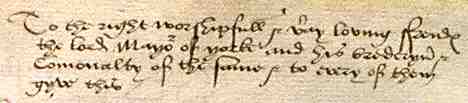 To the right worshipfull & very loving ffrends
the lord Mayor of yorke and his brederyn &
Comonalty of the same & to every of them
gyve this